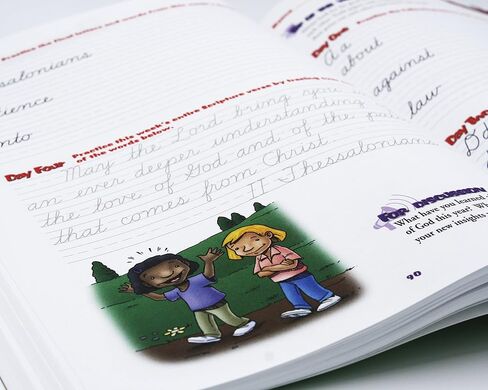 Practice the final letters and words from this
salonians
tience
nto
Day Four Practice this week's entire Scripture verse by tracing
of the words below.
May the Lord bring you
an ever deeper understanding
the love of God and of the
that comes from Christ
II Thessalonians
Day One
Aa
about
against
law
Day Two
For Discussion
What have you learned
of God this year?
your new insights
90